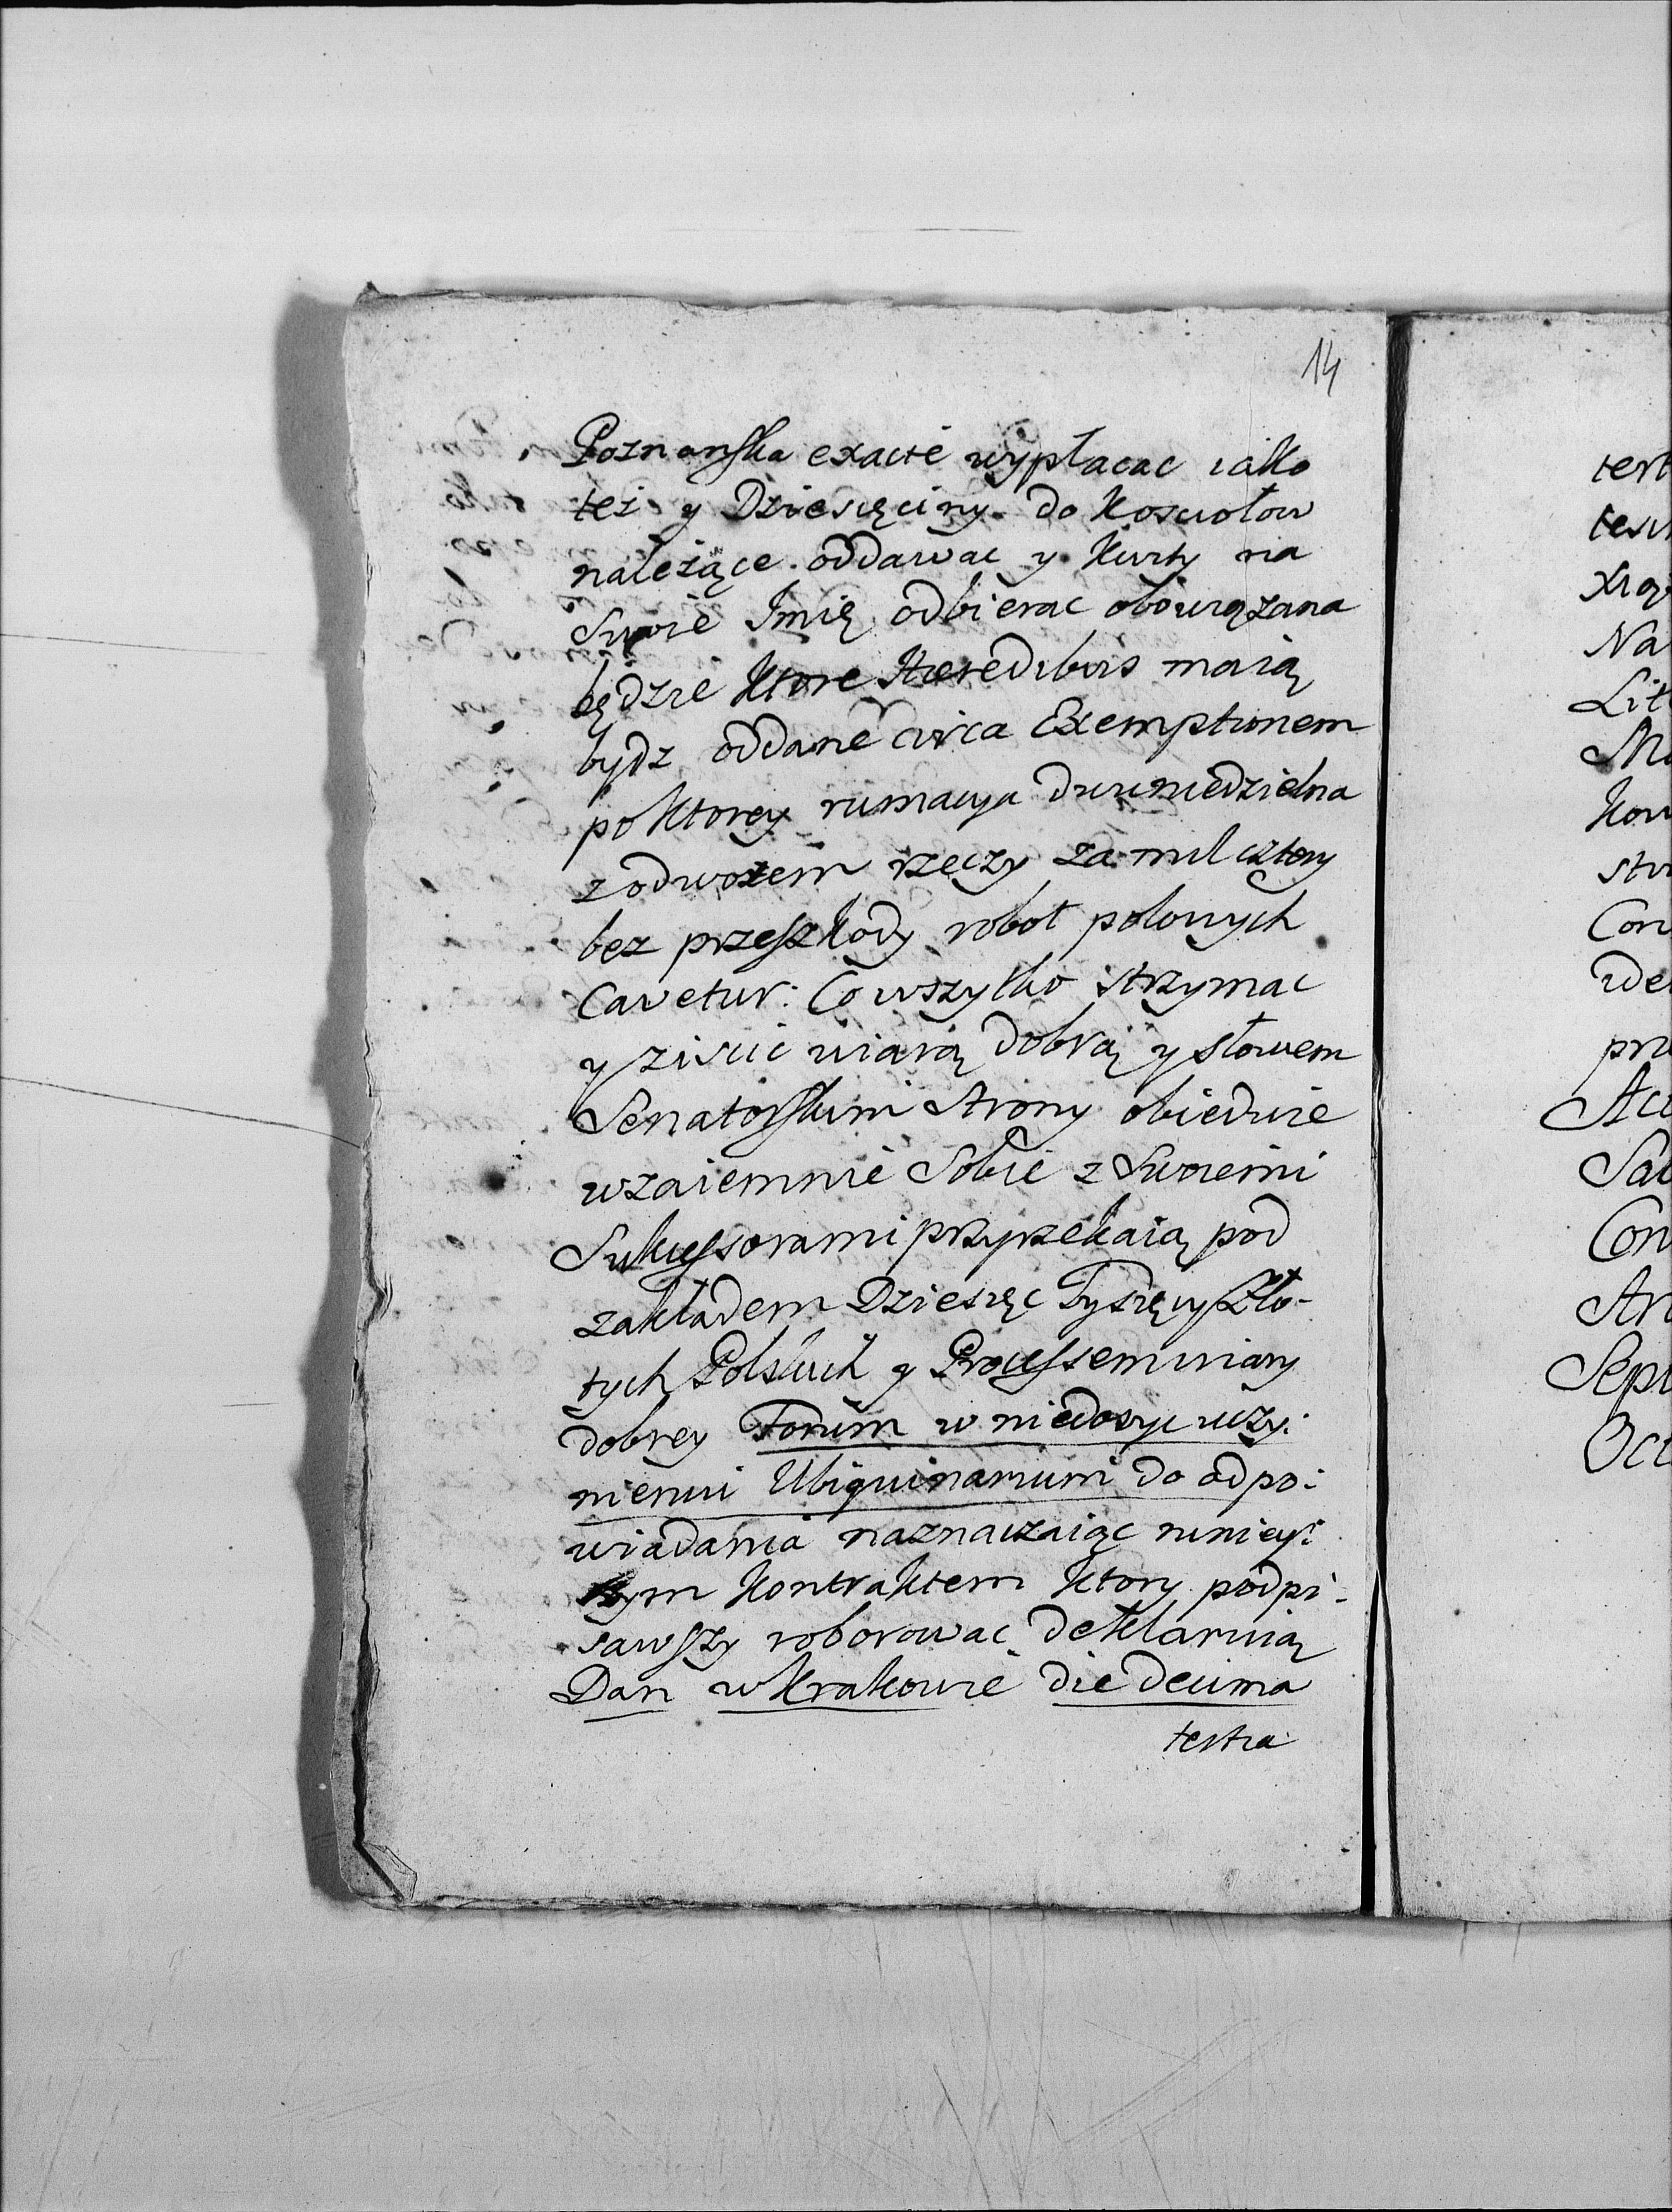 14
Poznanska exacte wypłacac iako
też y Dziesięciny do Kosciołow
należące oddawac y Kwity na
Swoie Imię odbierac obowiązana
będzie Ktore Heredibus maią
bydz oddane circa Exemptionem
po Ktorey rumacya dwuniedzielna
z odwozem rzeczy za mil cztery
bez przeszkody robot polowych
Cavetur: Co wszytko strzymac
y ziscic wiarą dobrą y słowem
Senatorskim Strony obiedwie
wzaiemnie Sobie z Swoiemi
Sukcessorami przyrzekaią pod
zakładem Dziesięc Tysięcy Zło-
tych Polskich y Processem wiary
dobrey Forum w niedosyc uczy:
nieniu Ubiquinarium do odpo:
wiadania naznaczaiąc niniey:
szym Kontraktem Ktory podpi-
sawszy roborowac deklaruią
Dan w Krakowie die decima
tertia